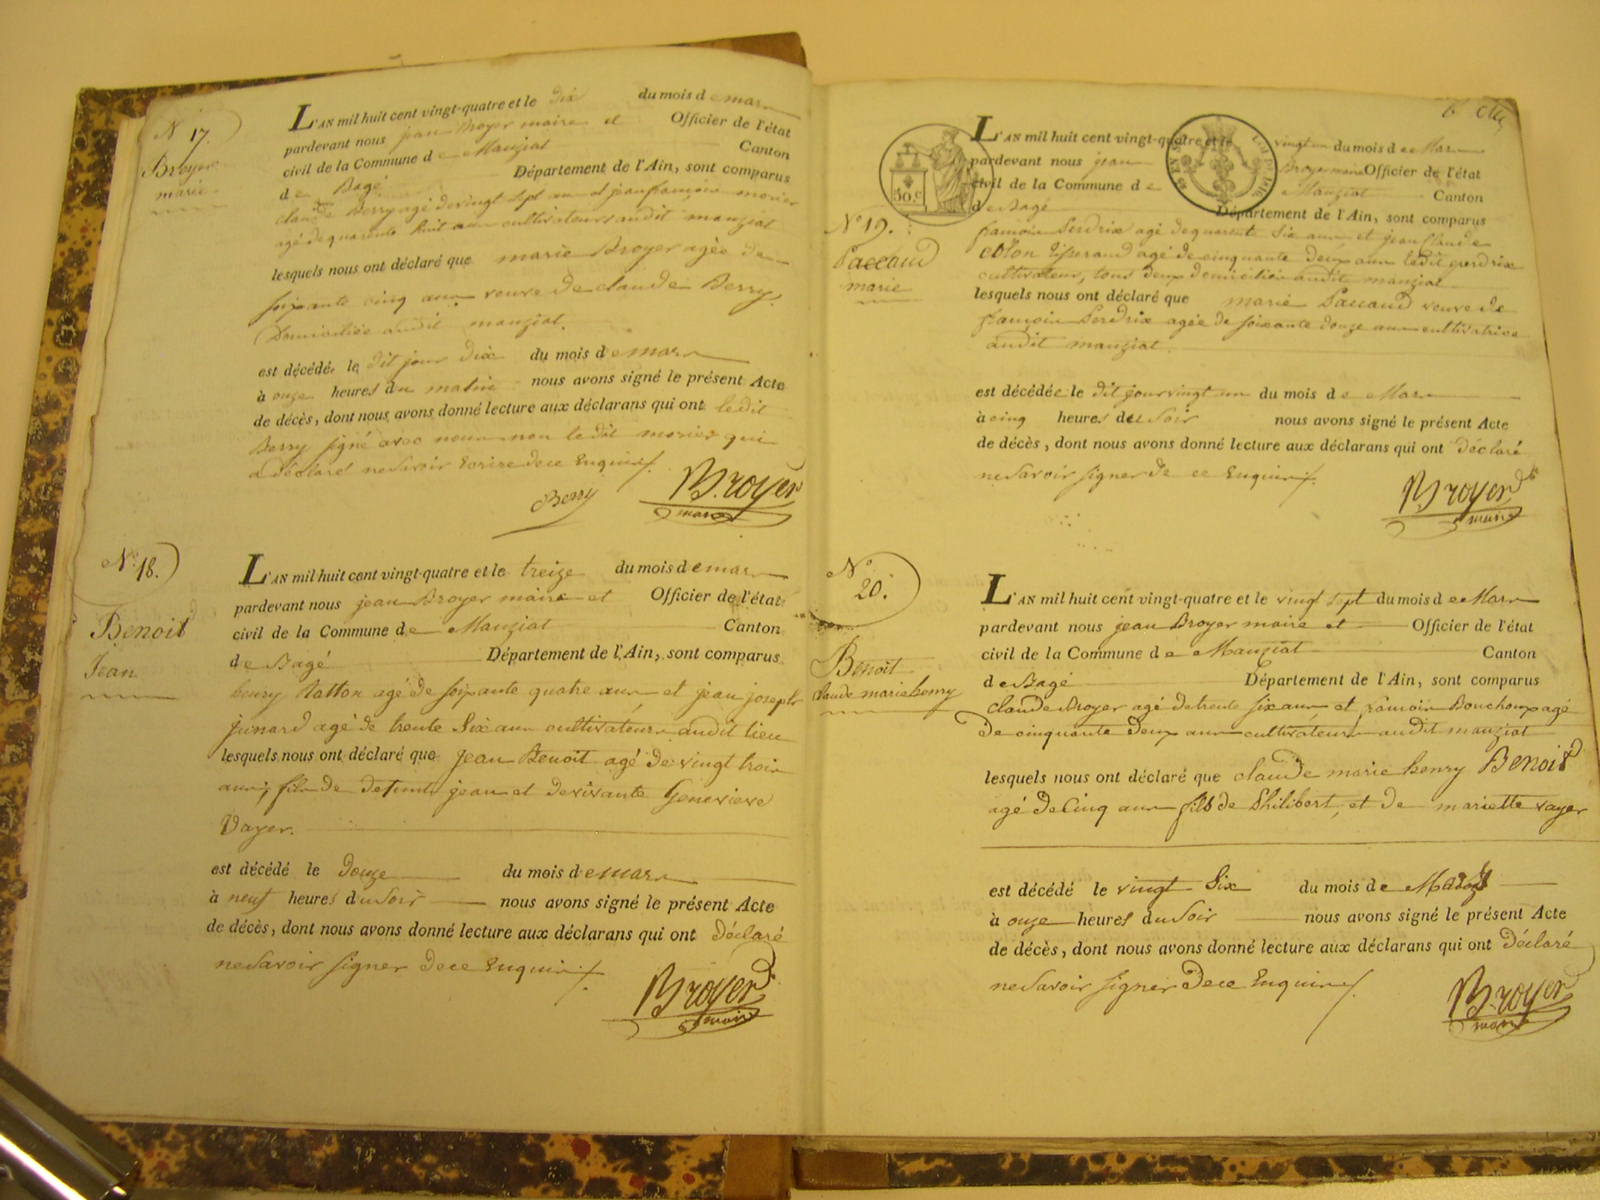 N° 17.
Broyer
marie
L'AN mil huit cent vingt-quatre et le dix du mois de mars
pardevant nous jean Broyer maire et Officier de l'état
civil de la Commune de Manziat Canton
de Bagé Département de l'Ain, sont comparus
claude Berry agé de vingt sept ans et jean françois morier
agé de quarante huit ans cultivateurs audit manziat
lesquels nous ont déclaré que marie Broyer agée de
soixante cinq ans veuve de claude Berry,
Domiciliée audit manziat.
est décédé le dit jour dix du mois de mars
à onze heures du matin nous avons signé le présent Acte
de décès, dont nous avons donné lecture aux déclarans qui ont ledit
Berry signé avec nous non le dit morier qui
a déclaré ne savoir Ecrire de ce Enquis
Berry Broyer
maire
N° 18.
Benoit
Jean
L'AN mil huit cent vingt-quatre et le treize du mois de mars
pardevant nous jean Broyer maire et Officier de l'état
civil de la Commune de Manziat Canton
de Bagé Département de l'Ain, sont comparus
henry Ratton agé de soixante quatre ans et jean joseph
junard agé de trente Six ans cultivateurs audit lieu
lesquels nous ont déclaré que jean Benoit agé de vingt trois
ans, fils de defunt jean et de vivante Genevieve
Vayer.
est décédé le Douze du mois de mars
à neuf heures du Soir nous avons signé le présent Acte
de décès, dont nous avons donné lecture aux déclarans qui ont déclaré
ne Savoir signer de ce Enquis
Broyer
maire
50.c
N° 19.
Paccaud
marie
L'AN mil huit cent vingt-quatre et le vingt un du mois de Mars
pardevant nous jean Broyer maire Officier de l'état
civil de la Commune de Manziat Canton
de Bagé Département de l'Ain, sont comparus
françois Perdrix agé de quarente Six ans, et jean Claude
colon tisserand agé de cinquante deux ans ledit perdrix
cultivateur, tous deux domiciliés audit manziat
lesquels nous ont déclaré que marie Paccaud veuve de
françois Perdrix agée de soixante douze ans cultivatrice
audit manziat.
est décédée le dit jour vingt un du mois de Mars
à cinq heures du Soir nous avons signé le présent Acte
de décès, dont nous avons donné lecture aux déclarans qui ont déclaré
ne Savoir signer de ce Enquis
Broyer
maire
N° 20.
Benoit
Claude marie henry
L'AN mil huit cent vingt-quatre et le vingt sept du mois de Mars
pardevant nous jean Broyer maire et Officier de l'état
civil de la Commune de Manziat Canton
de Bagé Département de l'Ain, sont comparus
claude Broyer agé de trente six ans et françois Bouchoux agé
De cinquante deux ans cultivateurs audit manziat
lesquels nous ont déclaré que claude marie henry Benoit
agé de Cinq ans fils de Philibert, et de mariette vayer
est décédé le vingt Six du mois de Mars
à onze heures du Soir nous avons signé le présent Acte
de décès, dont nous avons donné lecture aux déclarans qui ont Déclaré
ne Savoir signer De ce Enquis
Broyer
maire